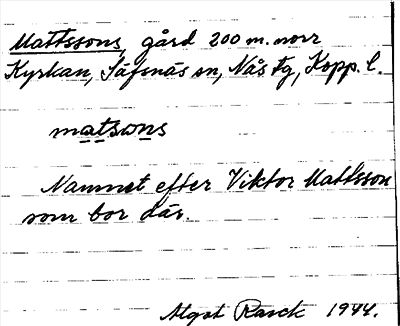 Mattssons, gård 200 m. norr
Kyrkan, Säfsnäs sn, Nås tg, Kopp. l.
matsons
Namnet efter Viktor Mattsson
som bor där.
Algot Rask 1944.